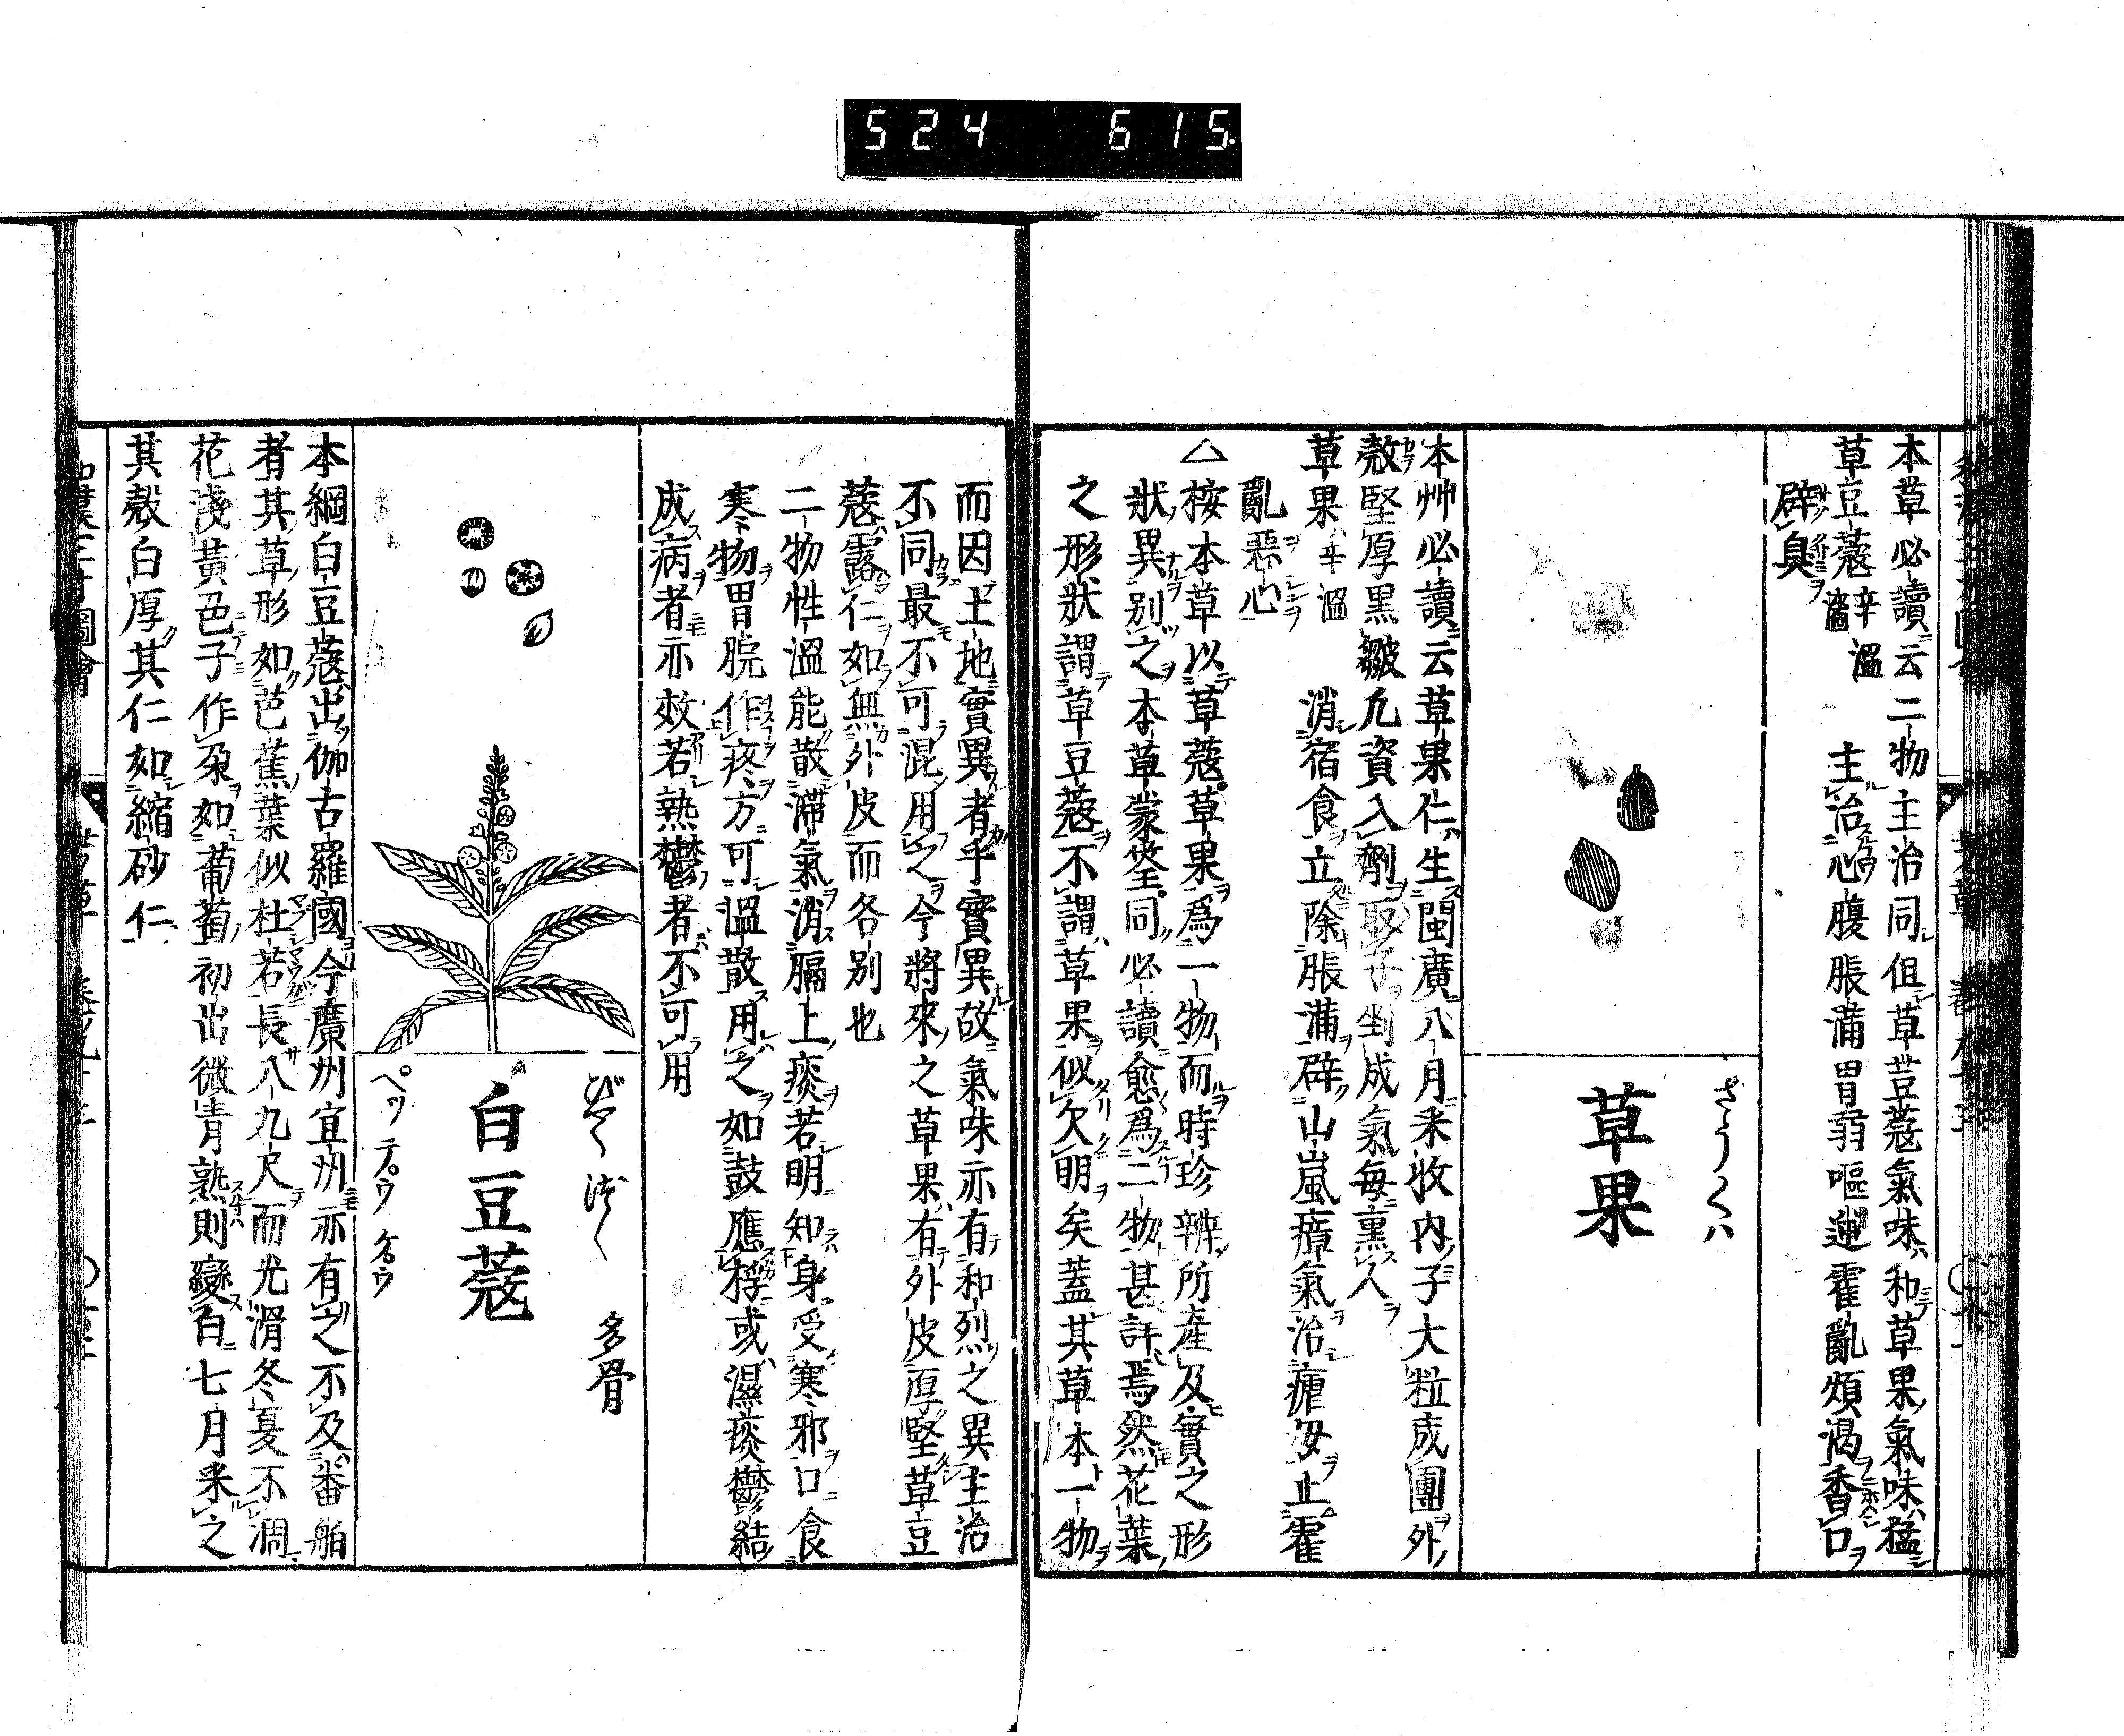 524 615.
本草必讀云二物主治同但草荳蔻氣味和草果氣味猛
草豆蔻辛温濇 主治心腹脹滿胃弱嘔逆霍亂煩渴香口
辟臭
さうくハ
草果
本艸必讀云草果仁生閩廣八月釆收内子大粒成團外
殼堅厚黑皺凢資入劑取子剉成氣每熏人
草果辛溫 消宿食立除脹滿辟山嵐瘴氣治瘧毋止霍
亂惡心
△按本草以草蔻草果爲一物而時珍辨所產及實之形
狀異別之本草蒙筌同必讀愈爲二物甚詳焉然花葉
之形狀謂草豆蔻不謂草果似欠明矣蓋其草本一物
而因土地實異者乎實異故氣味亦有和烈之異主治
不同最不可混用之今將來之草果有外皮厚堅草豆
蔻露仁如無外皮而各別也
二物性溫能散滯氣消膈上痰若明知身受寒邪口食
寒物胃脘作疼方可溫散用之如鼓應桴或濕痰鬱結
成病者亦效若熱鬱者不可用
びやくづく 多骨
白豆蔻
ペッテ゚ウケ゚ウ
本綱白豆蔻出伽古羅國今廣州宜州亦有之不及番舶
者其草形如芭蕉葉似杜若長八九尺而光滑冬夏不凋
花淺黃色子作朶如葡萄初出微青熟則變白七月釆之
其殼白厚其仁如縮砂仁